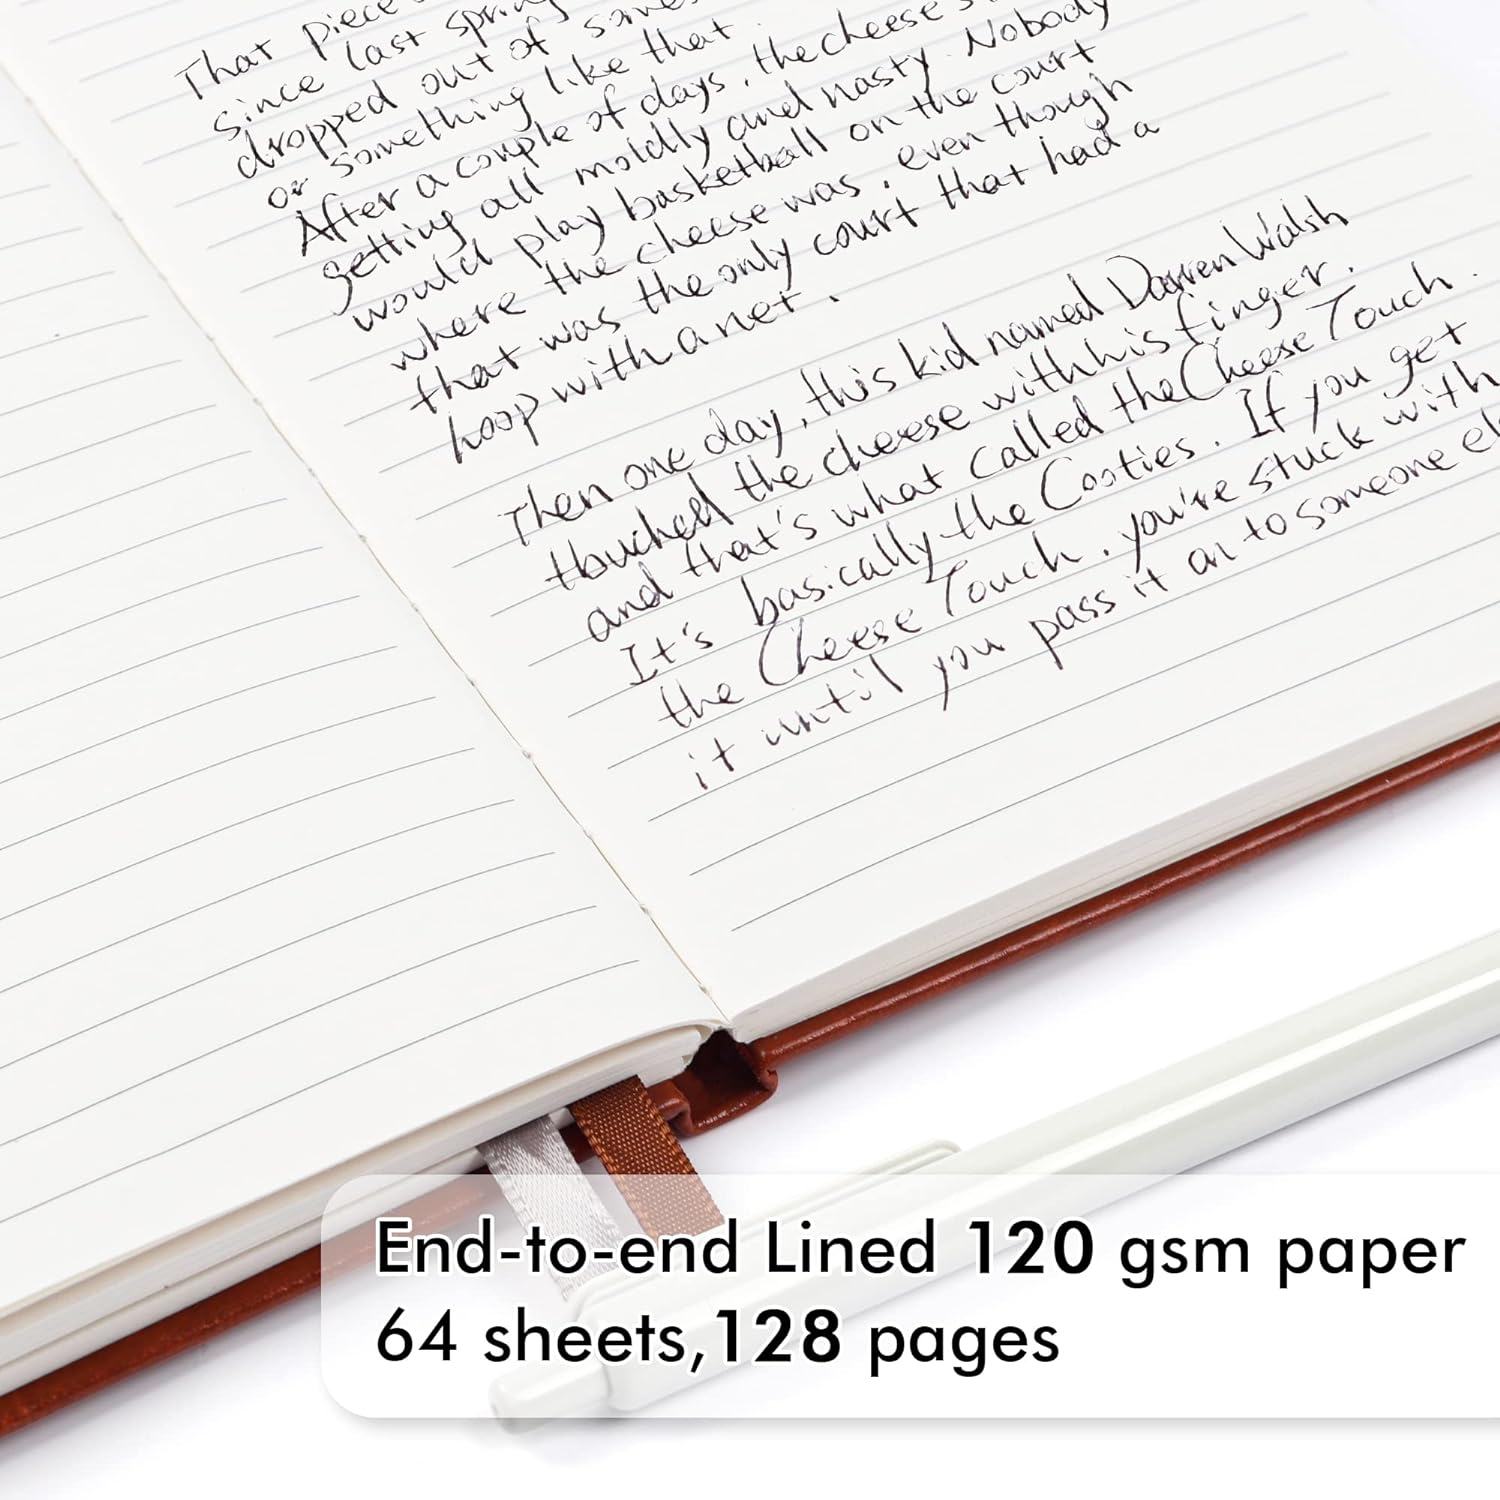 That piece
since last spring
dropped out of
or something like that
After a couple of days, the cheese
getting all moldly and nasty. Nobody
would play basketball on the court
where the cheese was, even though
that was the only court that had a
hoop with a net.
Then one day, this kid named Darren Walsh
touched the cheese with his finger.
and that's what called the Cheese Touch.
It's basically the Cooties. If you get
the Cheese Touch, you're stuck with
it until you pass it on to someone
End-to-end Lined 120 gsm paper
64 sheets,128 pages